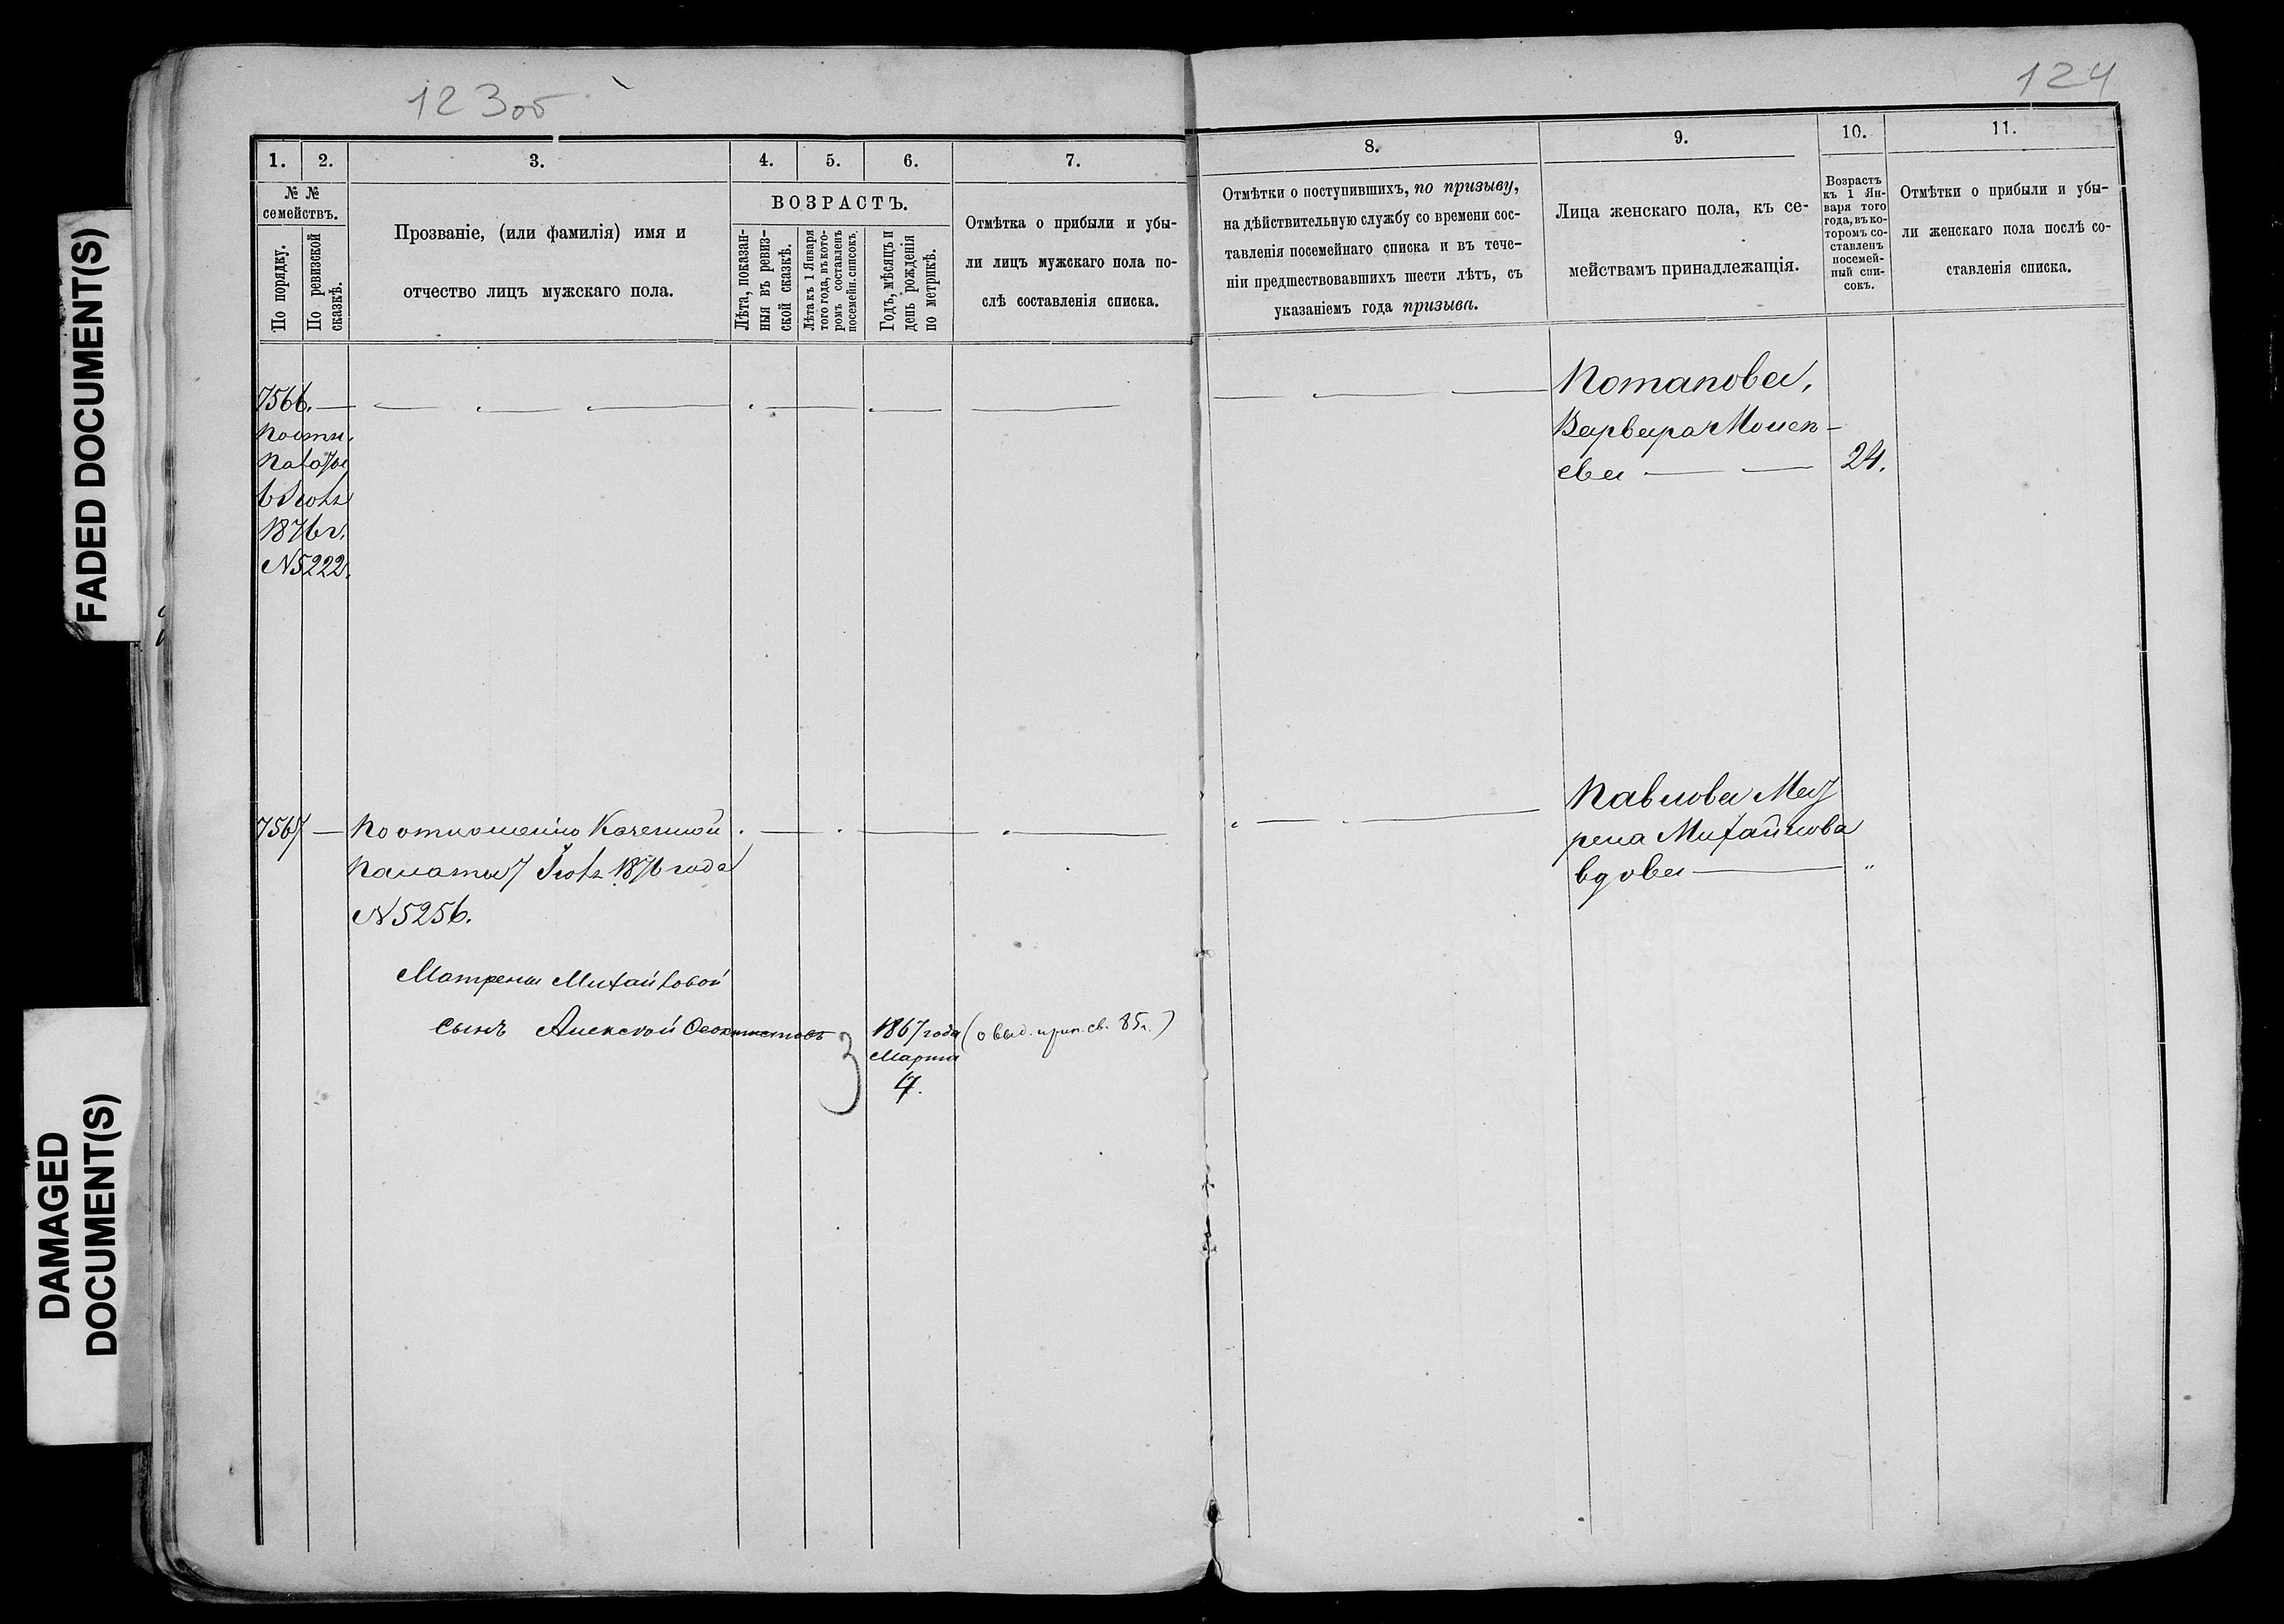 123об
124
FADED DOCUMENT(S)
DAMAGED
DOCUMENT(S)
1.
2.
3.
4.
5.
6.
7.
№ №
семействъ.
По порядку.
По ревизской
сказкѣ.
Прозваніе, (или фамилія) имя и
отчество лицъ мужскаго пола.
ВОЗРАСТЪ.
Лѣта, показан-
ныя въ ревиз-
ской сказкѣ.
Лѣта къ 1 Января
того года, въ кото-
ромъ составленъ
посемейн. списокъ.
Годъ, мѣсяцъ и
день рожденія
по метрикѣ.
Отмѣтка о прибыли и убы-
ли лицъ мужскаго пола по-
слѣ составленія списка.
8.
9.
10.
11.
Отмѣтки о поступившихъ, по призыву,
на дѣйствительную службу со времени сос-
тавленія посемейнаго списка и въ тече-
ніи предшествовавшихъ шести лѣтъ, съ
указаніемъ года призыва.
Лица женскаго пола, къ се-
мействамъ принадлежащія.
Возрастъ
къ 1 Ян-
варя того
года, въ ко-
торомъ со-
ставленъ
посемей-
ный спи-
сокъ.
Отмѣтки о прибыли и убы-
ли женскаго пола послѣ со-
ставленія списка.
7566.
1876 г.
N 5222.
Потапова,
Варвара Моисе-
ева
24.
7567
По отношенію Казенной
Палаты 7 1876 года
N 5256.
Матрены Михайловой
сынъ Алексѣй Феоктистовъ
3
1867 года
Марта
17.
(о выд. прип. св. 85 г.)
Павлова Мат
рена Михайлова
вдова
"